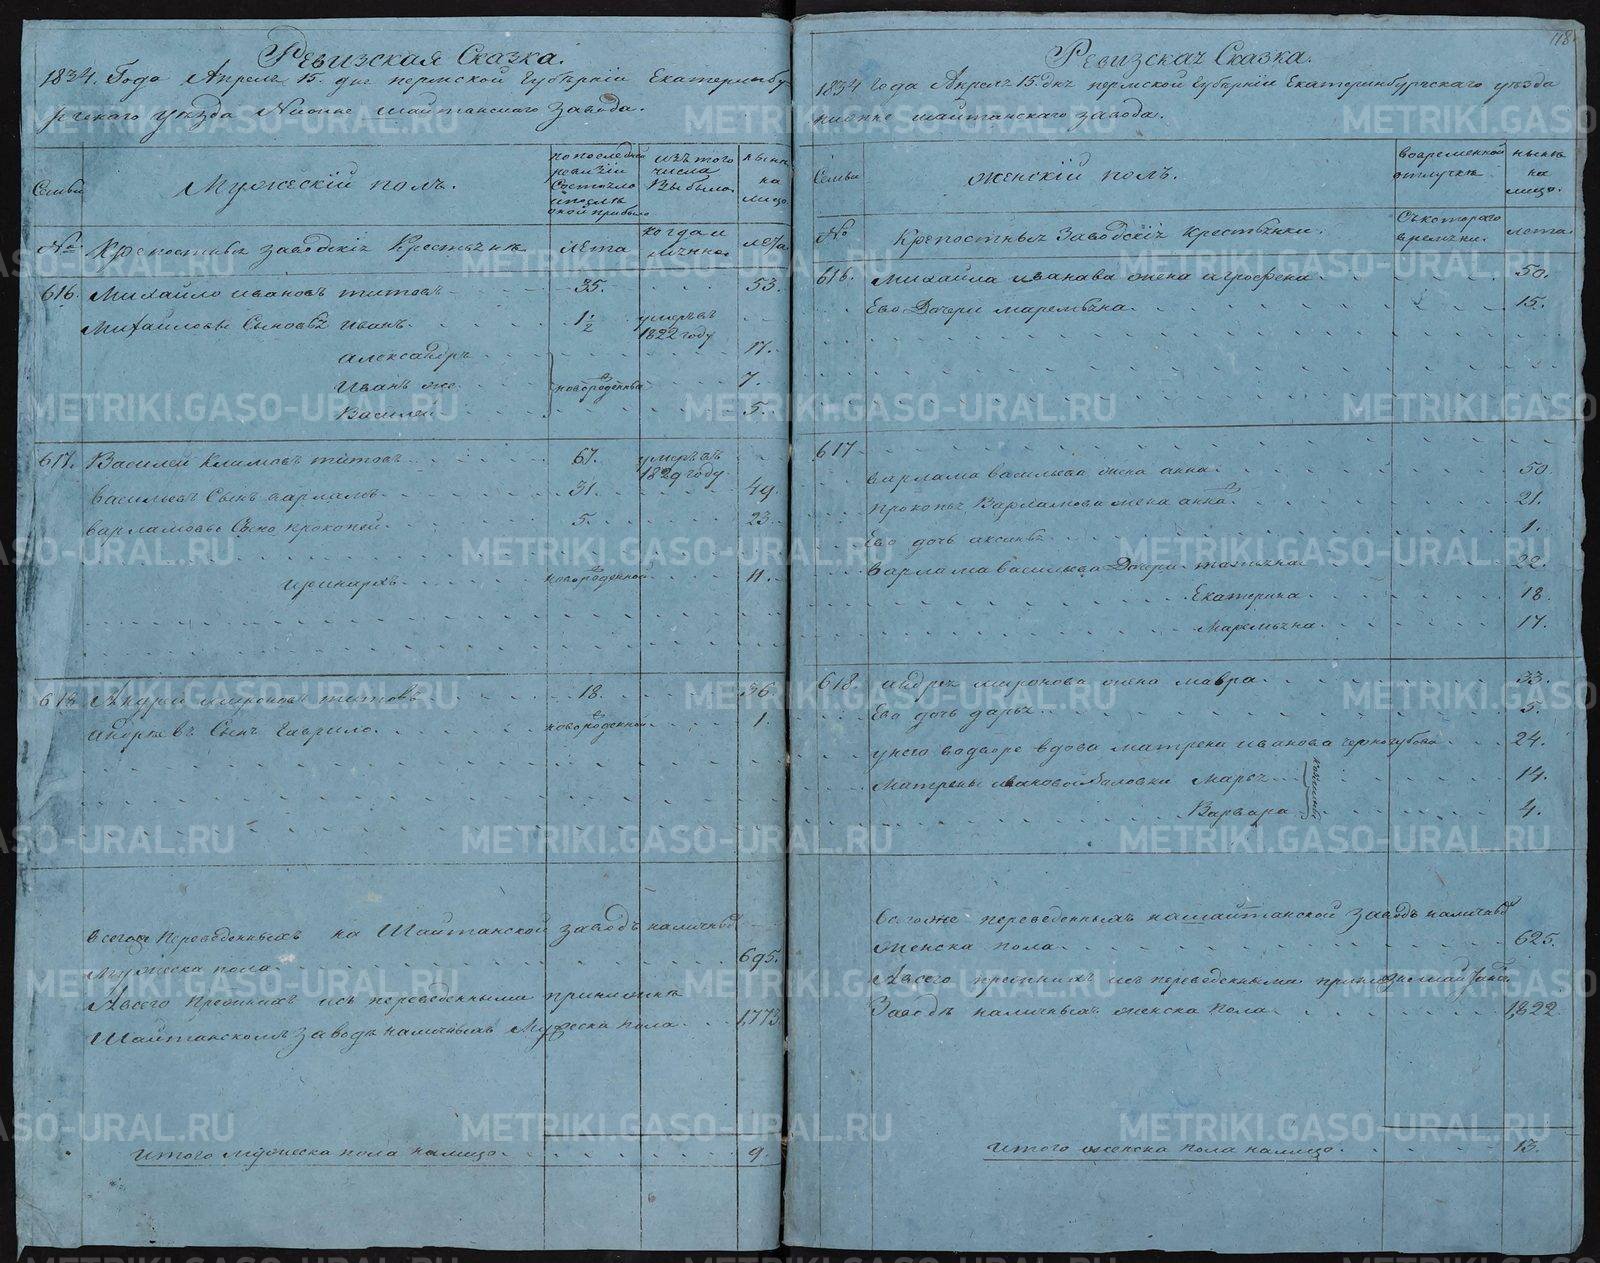 Ревизская Сказка.
1834. Года Апреля 15. дня пермской Губернїи Екатеринбу-
ргскаго уезда Нижне шайтанскаго завода.
Семьи
Мужескїй полъ.
по последней ревизїи Состояло и после оной прибыло
изъ того числа Выбыло.
ныне на лицо.
№
Крепостныя заводскїя Крестьяня
лета
когда и
лета
616. Михайло ивановъ титовъ 35. 53.
Михайловы Сыновья иванъ. 1 1/2 умеръ въ 1822 году
александръ 17.
Иванъ же новорожденныя 7.
Василей 5.
617. Василей климовъ титовъ 67. умеръ въ 1829 году
васильевъ Сынъ варламъ. 31. 49.
варламовы Сыно прокопей. 5. 23.
иринархъ новорожденной 11.
618 мироновъ титовъ 18. 36.
андреевъ Сынъ Гаврило новорожденной 1.
всего переведенныхъ на Шайтанской заводъ наличныхъ
Мужеска пола 695.
Авсего прежнихъ исъ переведенными принижне
Шайтанскомъ заводе наличныхъ Мужеска пола 1,773.
итого мужеска пола налицо. 9.
118.
Ревизская Сказка.
1834 года Апреля 15. дня пермской Губернїи Екатеринбургскаго уезда
нижне шайтанскаго завода.
Семьи
женскїй полъ.
во временной отлучке
ныне на лицо.
№
Крепостныя Заводскїя крестьянки.
Съ котораго времени.
лета
616. михайла иванава жена агрофена 50.
Ево Дочери маремьяна. 15.
617
варлама васильева жена анна. 50
прокопья Варламова жена анна. 21.
Ево дочь аксинья 1.
варлама васильева Дочери татьяна 22.
Екатерина 18.
Маремьяна. 17.
618. андрея миронова жена мавра. 33.
Ево дочь дарья 5.
унего водворе вдова матрена иванова черногубова 24.
матрены ивановой золовки марья 14.
Варвара 4.
всегоже переведенныхъ нашайтанской заводъ наличныхъ
женска пола. 625.
Авсего прежнихъ исъ переведенными
Заводе наличныхъ женска пола. 1,822.
итого женска пола налицо. 13.
METRIKI.GASO-URAL.RU